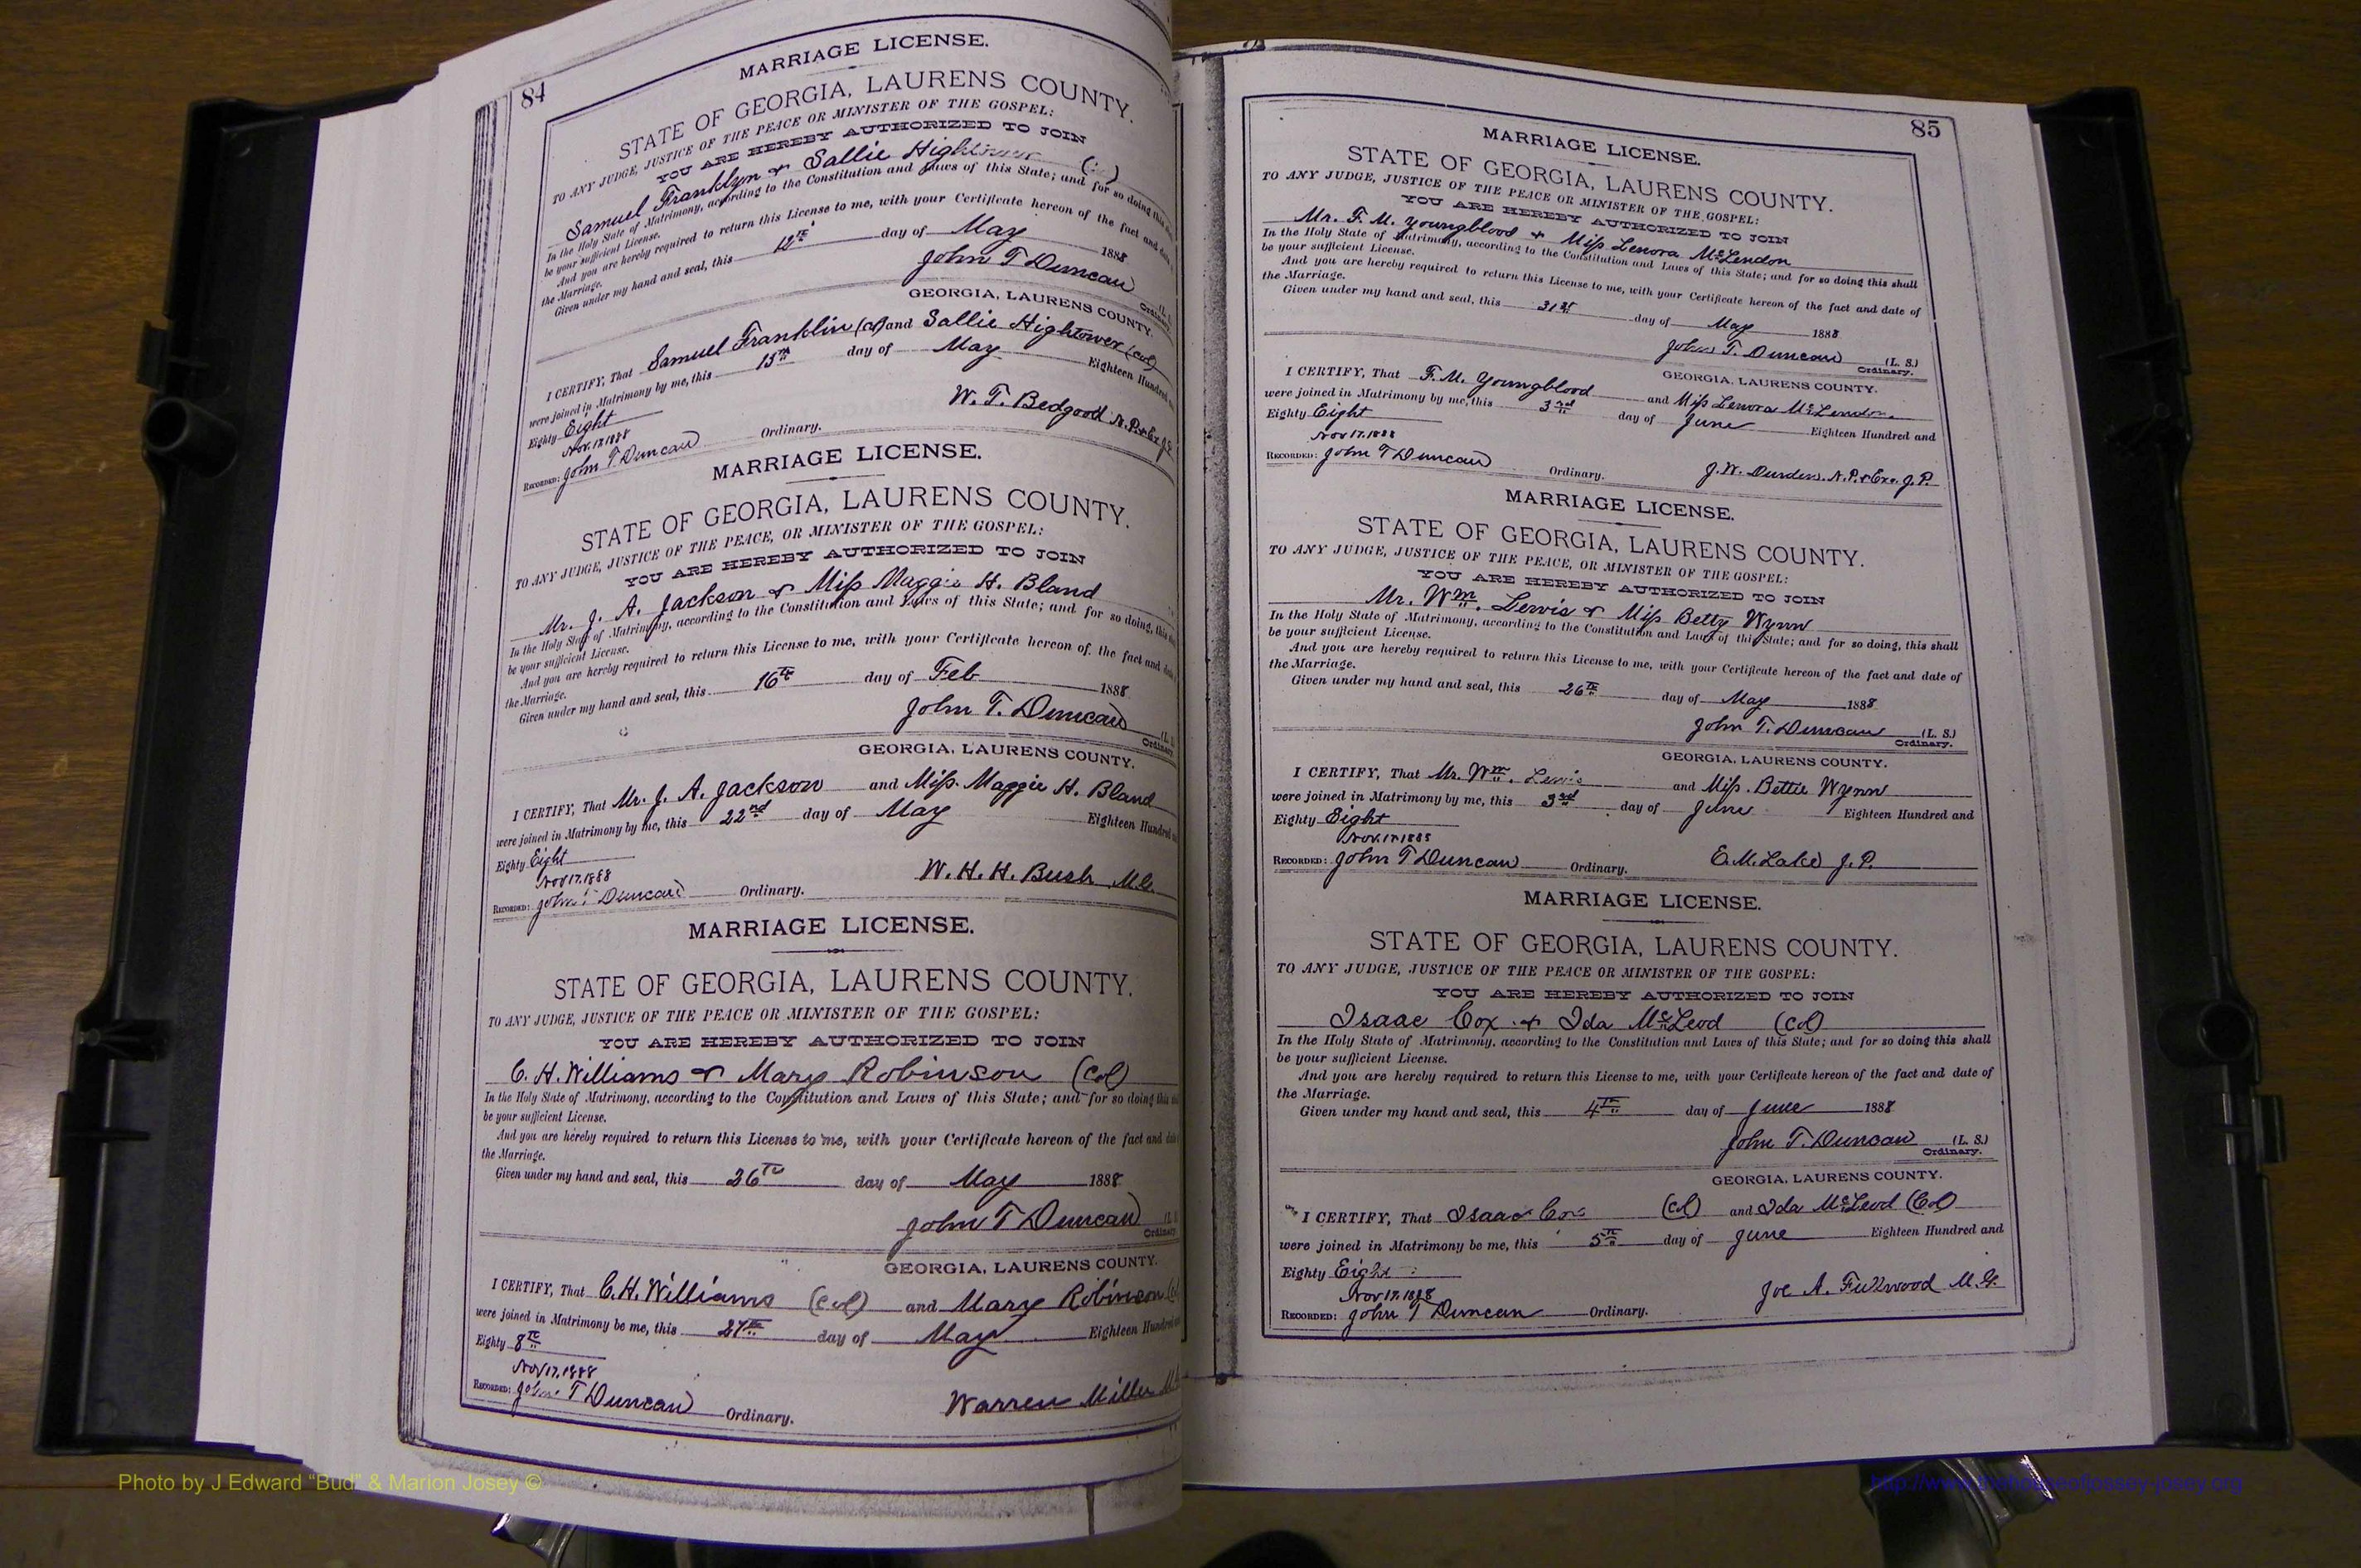 84
MARRIAGE LICENSE.
STATE OF GEORGIA, LAURENS COUNTY.
TO ANY JUDGE, JUSTICE OF THE PEACE OR MINISTER OF THE GOSPEL:
YOU ARE HEREBY AUTHORIZED TO JOIN
Samuel Franklyn & Sallie Hightower
In the Holy State of Matrimony, according to the Constitution and Laws of this State; and for so doing this
be your sufficient License.
And you are hereby required to return this License to me, with your Certificate hereon of the fact and date
the Marriage.
Given under my hand and seal, this 12th day of May 1888
John T Duncan
Ordinary.
GEORGIA, LAURENS COUNTY.
I CERTIFY, That Samuel Franklin (Col) and Sallie Hightower (Col)
were joined in Matrimony by me, this 13th day of May Eighteen Hundred
Eighty Eight
Nov. 17 1888
W. T. Bedgood N.P. & Ex J.P.
RECORDED: John T Duncan Ordinary.
MARRIAGE LICENSE.
STATE OF GEORGIA, LAURENS COUNTY.
TO ANY JUDGE, JUSTICE OF THE PEACE, OR MINISTER OF THE GOSPEL:
YOU ARE HEREBY AUTHORIZED TO JOIN
Mr. J. A. Jackson & Miss Maggie H. Bland
In the Holy State of Matrimony, according to the Constitution and Laws of this State; and for so doing, this
be your sufficient License.
And you are hereby required to return this License to me, with your Certificate hereon of the fact and date
the Marriage.
Given under my hand and seal, this 16th day of Feb 1888
John T. Duncan
Ordinary.
GEORGIA, LAURENS COUNTY.
I CERTIFY, That Mr. J. A. Jackson and Miss. Maggie H. Bland
were joined in Matrimony by me, this 22nd day of May Eighteen Hundred
Eighty Eight
Nov 17. 1888
W. H. H. Bush M.G.
RECORDED: John T Duncan Ordinary.
MARRIAGE LICENSE.
STATE OF GEORGIA, LAURENS COUNTY.
TO ANY JUDGE, JUSTICE OF THE PEACE OR MINISTER OF THE GOSPEL:
YOU ARE HEREBY AUTHORIZED TO JOIN
C. H. Williams & Mary Robinson (Col)
In the Holy State of Matrimony, according to the Constitution and Laws of this State; and for so doing this
be your sufficient License.
And you are hereby required to return this License to me, with your Certificate hereon of the fact and date
the Marriage.
Given under my hand and seal, this 26th day of May 1888
John T Duncan
Ordinary.
GEORGIA, LAURENS COUNTY.
I CERTIFY, That C. H. Williams (Col) and Mary Robinson
were joined in Matrimony be me, this 27th day of May Eighteen Hundred
Eighty 8th
Nov 17. 1888
Warren Miller
RECORDED: John T Duncan Ordinary.
85
MARRIAGE LICENSE.
STATE OF GEORGIA, LAURENS COUNTY.
TO ANY JUDGE, JUSTICE OF THE PEACE OR MINISTER OF THE GOSPEL:
YOU ARE HEREBY AUTHORIZED TO JOIN
Mr. F. M. Youngblood & Miss Lenora McLendon
In the Holy State of Matrimony, according to the Constitution and Laws of this State; and for so doing this shall
be your sufficient License.
And you are hereby required to return this License to me, with your Certificate hereon of the fact and date of
the Marriage.
Given under my hand and seal, this 31st day of May 1888
John T. Duncan (L. S.)
Ordinary.
GEORGIA, LAURENS COUNTY.
I CERTIFY, That F. M. Youngblood and Miss Lenora McLendon.
were joined in Matrimony by me, this 3rd day of June Eighteen Hundred and
Eighty Eight
Nov 17. 1888
RECORDED: John T Duncan Ordinary. J. W. Durden. N. P. & Exo. J. P.
MARRIAGE LICENSE.
STATE OF GEORGIA, LAURENS COUNTY.
TO ANY JUDGE, JUSTICE OF THE PEACE, OR MINISTER OF THE GOSPEL:
YOU ARE HEREBY AUTHORIZED TO JOIN
Mr. Wm. Lewis & Miss Betty Wynn
In the Holy State of Matrimony, according to the Constitution and Laws of this State; and for so doing, this shall
be your sufficient License.
And you are hereby required to return this License to me, with your Certificate hereon of the fact and date of
the Marriage.
Given under my hand and seal, this 26th day of May 1888
John T. Duncan (L. S.)
Ordinary.
GEORGIA, LAURENS COUNTY.
I CERTIFY, That Mr. Wm. Lewis and Miss. Bettie Wynn
were joined in Matrimony by me, this 3rd day of June Eighteen Hundred and
Eighty Eight
Nov. 17. 1888
RECORDED: John T Duncan Ordinary. E. M. Lake J. P.
MARRIAGE LICENSE.
STATE OF GEORGIA, LAURENS COUNTY.
TO ANY JUDGE, JUSTICE OF THE PEACE OR MINISTER OF THE GOSPEL:
YOU ARE HEREBY AUTHORIZED TO JOIN
Isaac Cox & Ida McLeod (Col)
In the Holy State of Matrimony, according to the Constitution and Laws of this State; and for so doing this shall
be your sufficient License.
And you are hereby required to return this License to me, with your Certificate hereon of the fact and date of
the Marriage.
Given under my hand and seal, this 4th day of June 1888
John T. Duncan (L. S.)
Ordinary.
GEORGIA, LAURENS COUNTY.
I CERTIFY, That Isaac Cox (Col) and Ida McLeod (Col)
were joined in Matrimony be me, this 5th day of June Eighteen Hundred and
Eighty Eight
Nov 17. 1888
Joe A. Fullwood M. G.
RECORDED: John T Duncan Ordinary.
Photo by J Edward “Bud” & Marion Josey ©
http://www.thehouseofjossey-josey.org